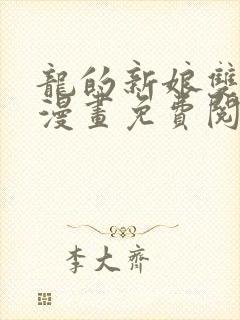 龍的新娘雙
漫畫免費閱
李大齊